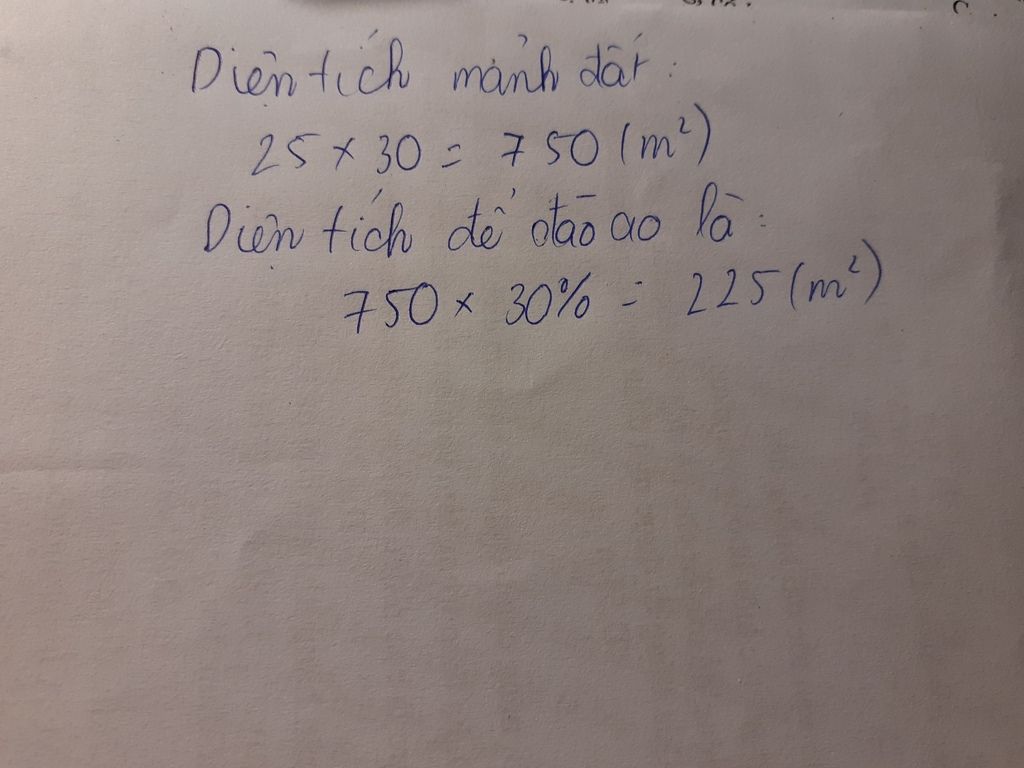 Diện tích mảnh đất:
25 × 30 = 750 (m²)
Diện tích để đào ao là:
750 × 30% = 225 (m²)